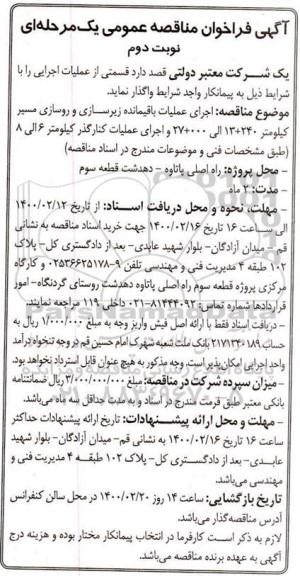 آگهی فراخوان مناقصه عمومی یک‌مرحله‌ای
نوبت دوم
یک شرکت معتبر دولتی قصد دارد قسمتی از عملیات اجرایی را با
شرایط ذیل به پیمانکار واجد شرایط واگذار نماید.
موضوع مناقصه: اجرای عملیات باقیمانده زیرسازی و روسازی مسیر
کیلومتر ۲۴۰+۱۳ الی ۰۰۰+۲۷ و اجرای عملیات کنارگذر کیلومتر ۶ الی ۸
(طبق مشخصات فنی و موضوعات مندرج در اسناد مناقصه)
- محل پروژه: راه اصلی پاتاوه - دهدشت قطعه سوم
- مدت: ۲ ماه
- مهلت، نحوه و محل دریافت اسناد: از تاریخ ۱۴۰۰/۰۲/۱۲
الی ساعت ۱۶ تاریخ ۱۴۰۰/۰۲/۱۶ جهت خرید اسناد مناقصه به نشانی
قم- میدان آزادگان- بلوار شهید عابدی- بعد از دادگستری کل- پلاک
۱۰۲ طبقه ۴ مدیریت فنی و مهندسی تلفن ۹-۰۲۵۳۶۶۲۵۱۷۸ و کارگاه
مرکزی پروژه قطعه سوم راه اصلی پاتاوه دهدشت روستای گردنگاه- امور
قراردادها شماره تماس: ۸۱۴۴۴۰۹۲-۰۲۱ داخلی ۱۱۹ مراجعه نمایند.
- دریافت اسناد فقط با ارائه اصل فیش واریز وجه به مبلغ ۱/۰۰۰/۰۰۰ ریال به
حساب ۲۱۷۱۳۴۰۱۸۹ بانک ملت شعبه شهرک امام حسین قم در وجه تنخواه درآمد
واحد اجرایی امکان‌پذیر است. وجه مذکور به هیچ عنوان قابل استرداد نخواهد بود.
- میزان سپرده شرکت در مناقصه: مبلغ ۳/۰۰۰/۰۰۰/۰۰۰ ریال ضمانتنامه
بانکی معتبر طبق فرمت مندرج در اسناد و به مدت حداقل سه ماه می‌باشد.
- مهلت و محل ارائه پیشنهادات: تاریخ ارائه پیشنهادات حداکثر
ساعت ۱۶ تاریخ ۱۴۰۰/۰۲/۱۶ به نشانی قم- میدان آزادگان- بلوار شهید
عابدی- بعد از دادگستری کل- پلاک ۱۰۲ طبقه ۴ مدیریت فنی و
مهندسی می‌باشد.
تاریخ بازگشایی: ساعت ۱۴ روز ۱۴۰۰/۰۲/۲۰ در محل سالن کنفرانس
آدرس مناقصه‌گذار می‌باشد.
لازم به ذکر است کارفرما در انتخاب پیمانکار مختار بوده و هزینه درج
آگهی به عهده برنده مناقصه می‌باشد.